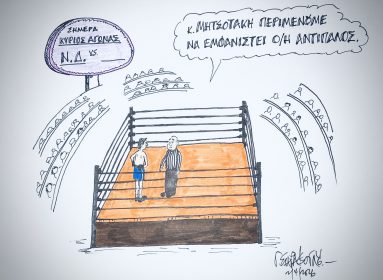 ΣΗΜΕΡΑ
ΚΥΡΙΟΣ ΑΓΩΝΑΣ
Ν.Δ. VS __
Κ. ΜΗΤΣΟΤΑΚΗ ΠΕΡΙΜΕΝΟΥΜΕ
ΝΑ ΕΜΦΑΝΙΣΤΕΙ Ο/Η ΑΝΤΙΠΑΛΟΣ.